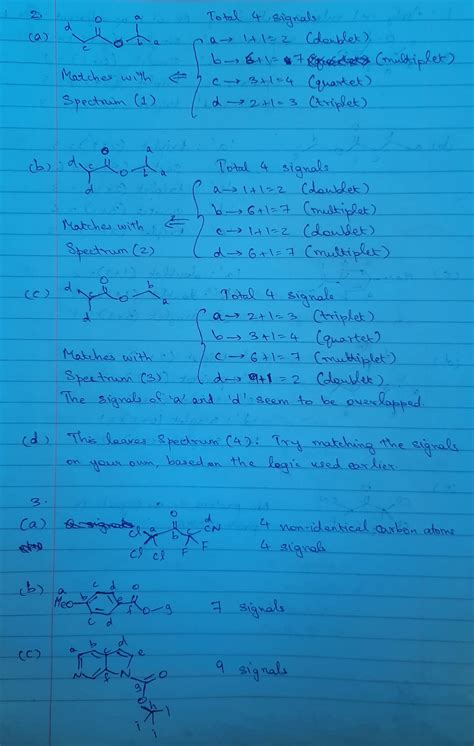 2.
(a) d c O O b a a
Total 4 signals
a → 1+1=2 (doublet)
b → 6+1=7 (multiplet)
c → 3+1=4 (quartet)
d → 2+1=3 (triplet)
Matches with
Spectrum (1)
(b) d c d O O b a a
Total 4 signals
a → 1+1=2 (doublet)
b → 6+1=7 (multiplet)
c → 1+1=2 (doublet)
d → 6+1=7 (multiplet)
Matches with
Spectrum (2)
(c) d c d O O b a
Total 4 signals
a → 2+1=3 (triplet)
b → 3+1=4 (quartet)
c → 6+1=7 (multiplet)
d → 1+1=2 (doublet)
Matches with
Spectrum (3)
The signals of 'a' and 'd' seem to be overlapped.
(d) This leaves Spectrum (4). Try matching the signals
on your own, based on the logic used earlier.
3.
(a) Cl a Cl Cl O b c F F d CN
4 non-identical carbon atoms
4 signals
(b) a MeO b c d c d e f O O g
7 signals
(c) a b c d e N N f g O O h i i i
9 signals